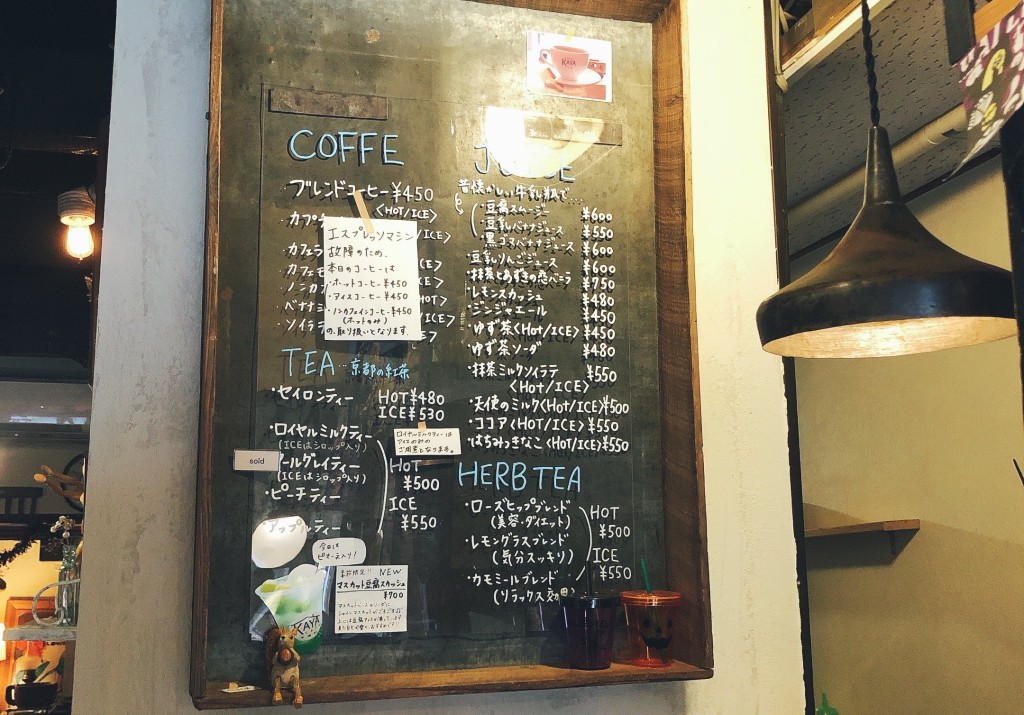 KAYA
COFFE
・ブレンドコーヒー ¥450
<HOT/ICE>
・カプ
ICE>
・カフェラ
・カフェモ
・ノンカフ
HOT>
・バナナミ
・ソイラテ
エスプレッソマシン
故障のため、
本日のコーヒーは
・ホットコーヒー ¥450
・アイスコーヒー ¥450
・ノンカフェインコーヒー ¥450
(ホットのみ)
の、取り扱いとなります。
TEA…京都の紅茶
・セイロンティー HOT ¥480
ICE ¥530
・ロイヤルミルクティー
(ICEはシロップ入り)
ロイヤルミルクティーは
アイスのみの
ご用意となります。
sold
アールグレイティー
(ICEはシロップ入り)
・ピーチティー
・アップルティー
HOT
¥500
ICE
¥550
今日は
ピオーネ入り!
NEW
マスカット豆腐スカッシュ
¥700
KAYA
JUICE
昔懐かしい牛乳瓶で…
・豆腐スムージー ¥600
・豆乳バナナジュース ¥550
・黒ゴマバナナジュース ¥600
・豆乳りんごジュース ¥600
・抹茶とあずきの恋バニラ ¥750
・レモンスカッシュ ¥480
・ジンジャエール ¥450
・ゆず茶<Hot/ICE> ¥450
・ゆず茶ソーダ ¥480
・抹茶ミルクソイラテ ¥550
<Hot/ICE>
・天使のミルク<Hot/ICE> ¥500
・ココア<Hot/ICE> ¥550
・はちみつきなこ<Hot/ICE> ¥550
HERB TEA
・ローズヒップブレンド
(美容・ダイエット)
・レモングラスブレンド
(気分スッキリ)
・カモミールブレンド
(リラックス効果)
HOT
¥500
ICE
¥550